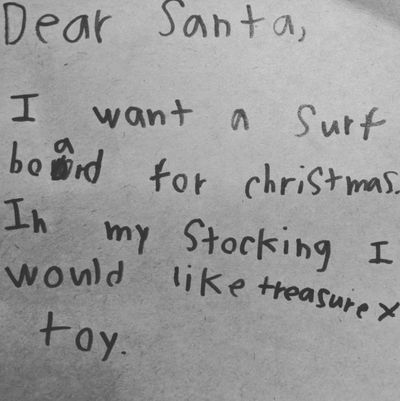 Dear Santa,
I want a surf
board for christmas.
In my Stocking I
would like treasure x
toy.